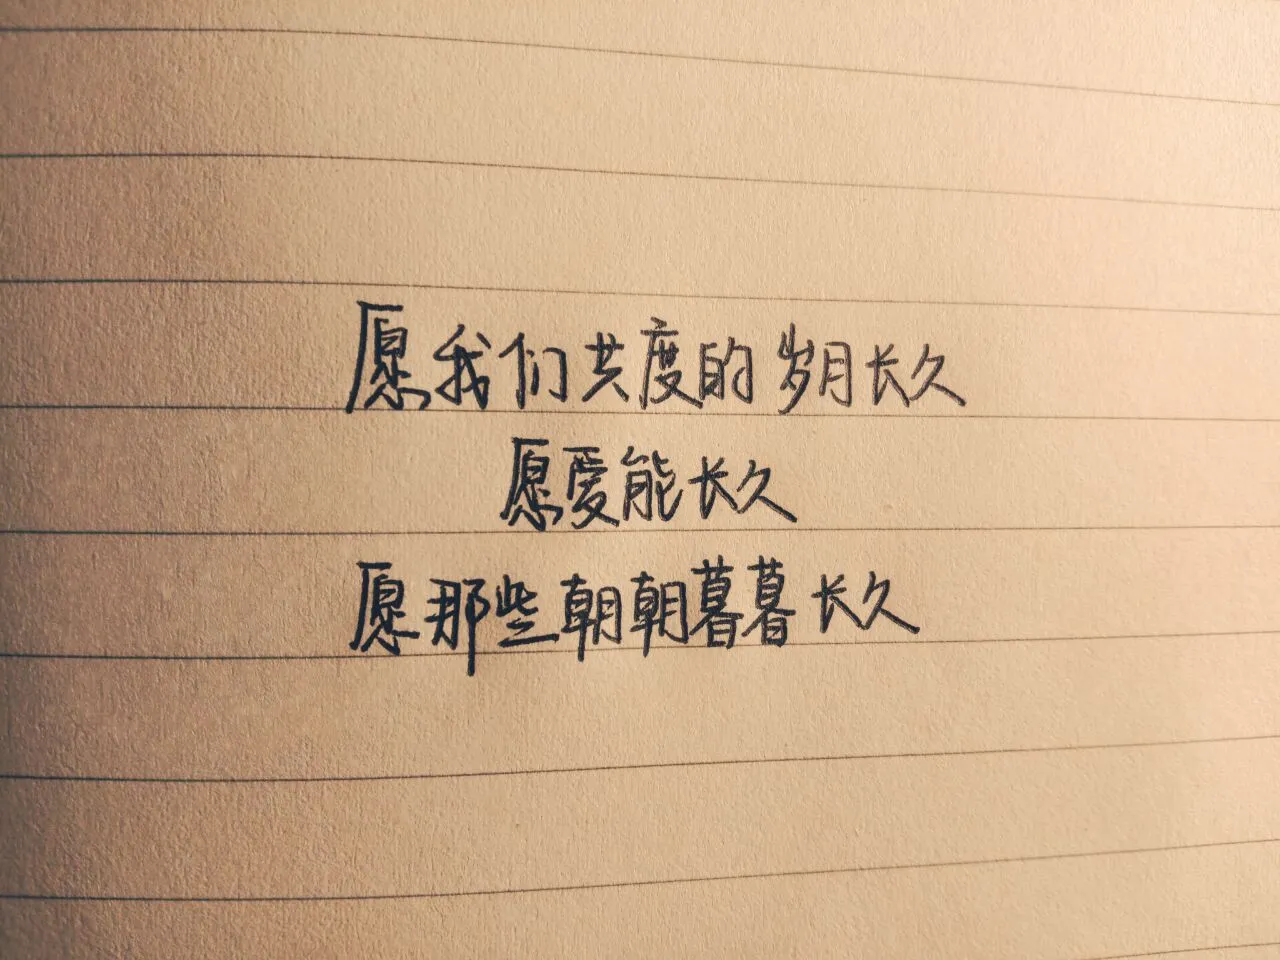 愿我们共度的岁月长久
愿爱能长久
愿那些朝朝暮暮长久